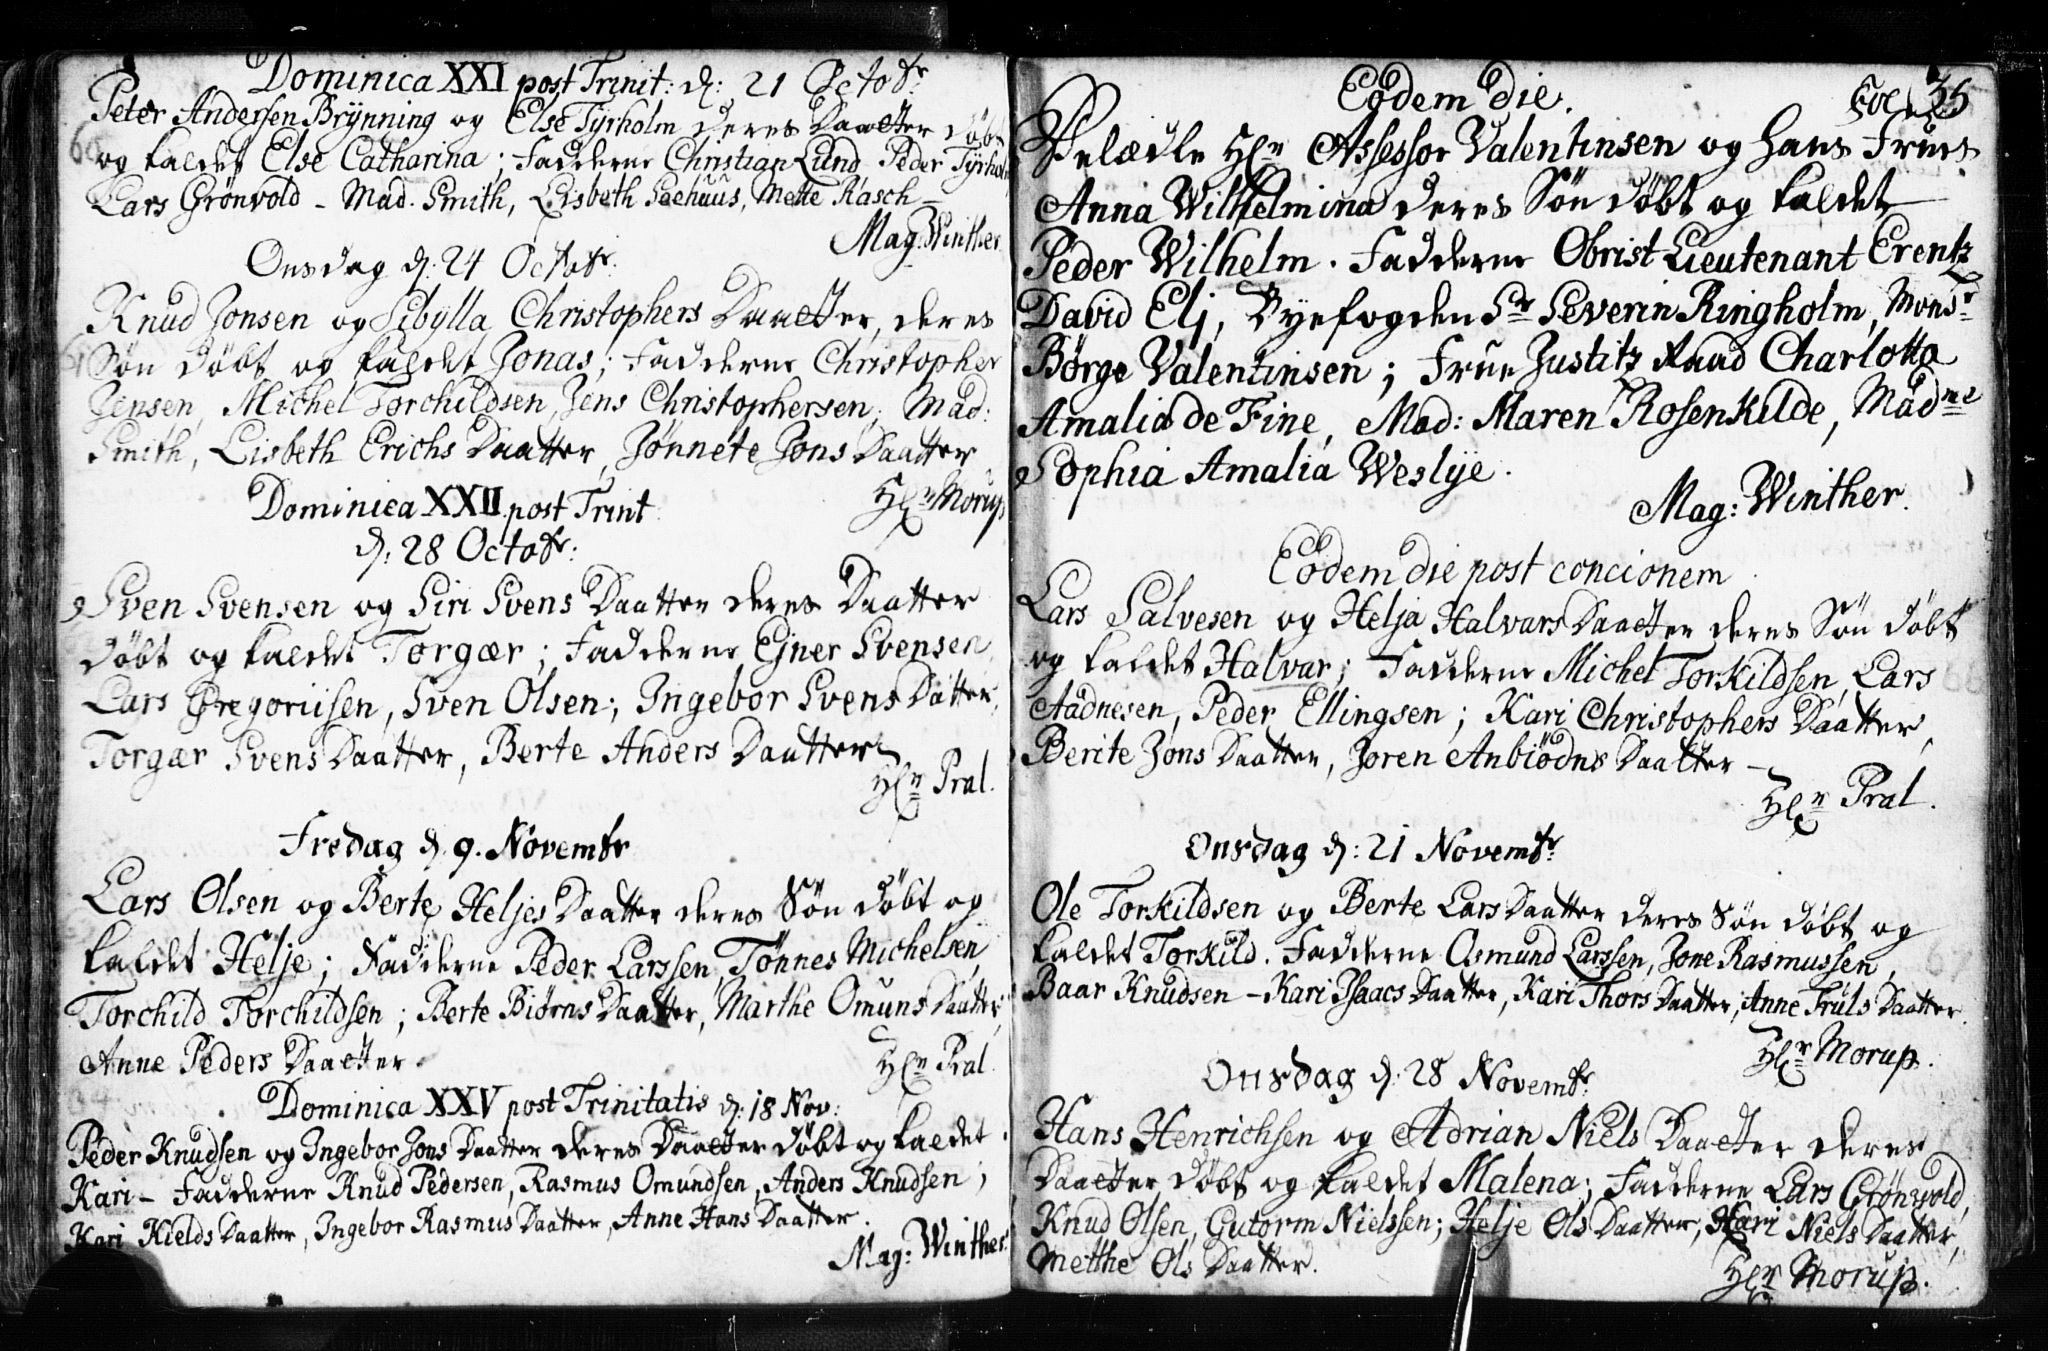 Dominica XXI post Trinit: d: 21 Octobr:
Peter Andersen Brÿnning og Else Tyrholm deres Daatter döbt
og kaldet Else Catharina; Fadderne Christian Lund Peder Tÿrholm
Lars Grönvold - Mad. Smith, Lisbeth Seehuus, Mette Rasch -
Mag: Winther.
Onsdag d: 24 Octobr:
Knud Jonsen og Sibÿlla Christophers Daatter, deres
Sön döbt og kaldet Jonas; Fadderne Christopher
Jensen, Michel Torchildsen, Jens Christophersen; Mad:
Smith, Lisbeth Erichs Daatter, Jönnete Jons Daatter
Hr Morup
Dominica XXII post Trinit
d: 28 Octobr:
Sven Svensen og Siri Svens Daatter deres Daatter
döbt og kaldet Torgær; Fadderne Ejner Svensen,
Lars Gregoriisen, Sven Olsen; Ingebor Svens Datter,
Torgær Svens Daatter, Berte Anders Daatter
Hr Pral.
Fredag d. 9. Novembr
Lars Olsen og Berte Heljes Daatter deres Sön döbt og
kaldet Helje; Fadderne Peder Larssen, Tönnes Michelsen,
Torchild Torchildsen; Berte Biörns Daatter, Marthe Omuns Daatter,
Anne Peders Daatter.
Hr Pral.
Dominica XXV post Trinitatis d: 18 Nov:
Peder Knudsen og Ingebor Jons Daatter deres Daatter döbt og kaldet
Kari - Fadderne Knud Pedersen, Rasmus Omundsen, Anders Knudsen;
Kari Kields Daatter, Ingebor Rasmus Daatter, Anne Hans Daatter.
Mag: Winther.
Eödem die.
Fol 35
Velædle Hr Assessor Valentinsen og Hans Frues
Anna Wilhelmina deres Sön döbt og kaldet
Peder Wilhelm. Fadderne Obrist Lieutenant Erentz
David Elj, Byefogden Sr Severin Ringholm, Monsr
Börge Valentinsen; Frue Justitz Raad Charlotta
Amalia de Fine, Mad: Maren Rosenkilde, Madme
Sophia Amalia Weslÿe.
Mag: Winther.
Eödem die post concionem
Lars Salvesen og Helja Halvars Daatter deres Sön döbt
og kaldet Halvar; Fadderne Michel Torkildsen, Lars
Aadnesen, Peder Ellingsen; Kari Christophers Daatter,
Berite Jons Daatter, Joren Anbiödns Daatter -
Hr Pral.
Onsdag d: 21 Novembr:
Ole Torkildsen og Berte Lars Daatter deres Sön döbt og
kaldet Torkild. Fadderne Osmund Larssen, Jone Rasmussen,
Baar Knudsen - Kari Isaacs Daatter, Kari Thors Daatter, Anne Truls Daatter.
Hr Morup.
Onsdag d: 28 Novembr:
Hans Henrichsen og Adrian Niels Daatter deres
Daatter döbt og kaldet Malena; Fadderne Lars Grönvold,
Knud Olsen, Gutorm Nielssen; Helje Ols Daatter, Kari Niels Daatter,
Metthe Ols Daatter.
Hr Morup.